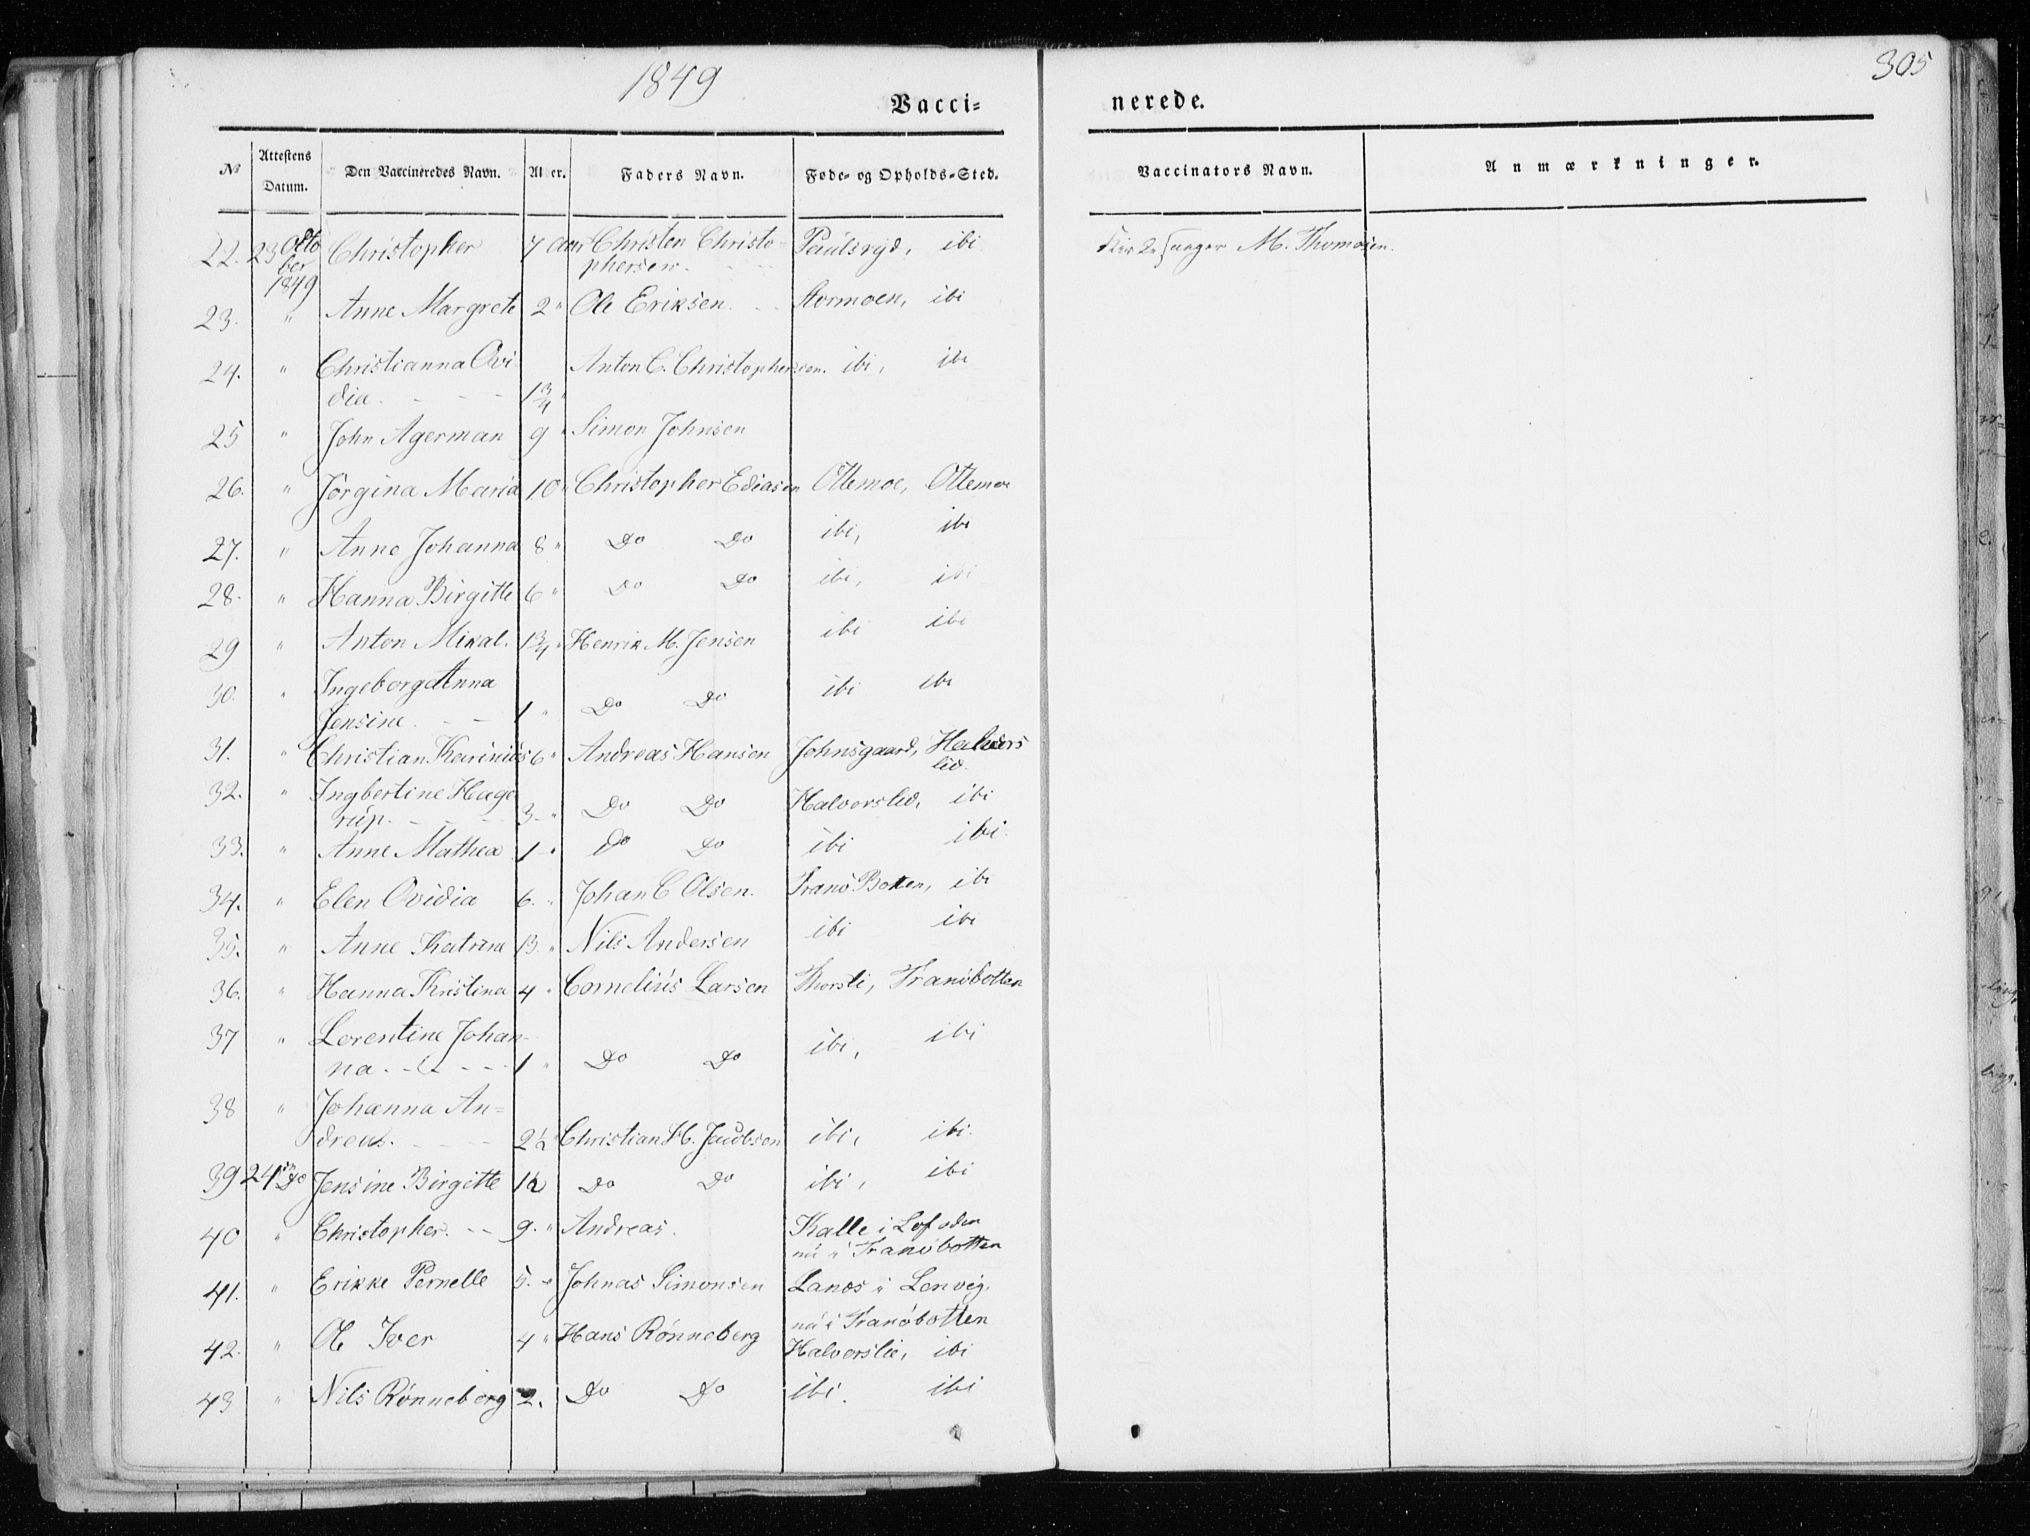 1849
305
Vacci= nerede.
No Attestens Datum. Den Vaccineredes Navn. Alder. Faders Navn. Føde- og Opholds-Sted. Vaccinators Navn. Anmærkninger.
22. 23 Octo Christopher 7 Aar Christen Christo- Paulsryd, ibi M. Thomasen.
ber phersen.
1849
23. " Anne Margrete 2 " Ole Eriksen. Stormoen, ibi
24. " Christianna Ovi Anton C. Christophersen. ibi, ibi
dia. - - - 1 3/4 "
25 " John Agerman 9 " Simon Johnsen
26. " Jörgina Maria 10 " Christopher Ediasen Ottemoe, Ottemoe
27. " Anne Johanna 8 " Do Do ibi, ibi
28. " Hanna Birgitte 6 " Do Do ibi, ibi
29 " Anton Mikal. 1 3/4 " Henrik M. Jensen ibi ibi
30. " Ingeborg Anna
Jensine. - - 1 " Do Do ibi ibi
31. " Christian Karinius 6 " Andreas Hansen Johnsgaard, Halvors
lid.
32. " Ingbertine Hage
rup. - - - 3 - " Do Do Halvorslid, ibi
33. " Anne Mathea 1 - " Do Do ibi ibi
34. " Elen Ovidia 6. " Johan C Olsen. Tranö Botten, ibi
35. " Anne Katrine 13. " Nils Andersen ibi ibi
36. " Hanna Kristina 4 " Cornelius Larsen Thorsli, Tranöbotten
37 " Lorentine Johan-
na. - - - - 1 " Do Do ibi, ibi
38 " Johanna An=
drea. - - - 2 1/2 Christian H. Jacobsen ibi, ibi.
39 24 Do Jensine Birgitte 1 1/2 Do Do ibi, ibi
40 " Christopher. - - 9. " Andreas. Kalle i Lofoden
nu i Tranöbotten
41. " Erikke Pernelle 5. " Johnas Simonsen Lanes i Lenvig.
nu i Tranöbotten
42. " Ole Iver 4 " Hans Rönneberg Halvorslie, ibi
43 " Nils Rönneberg 2. Do Do ibi. ibi